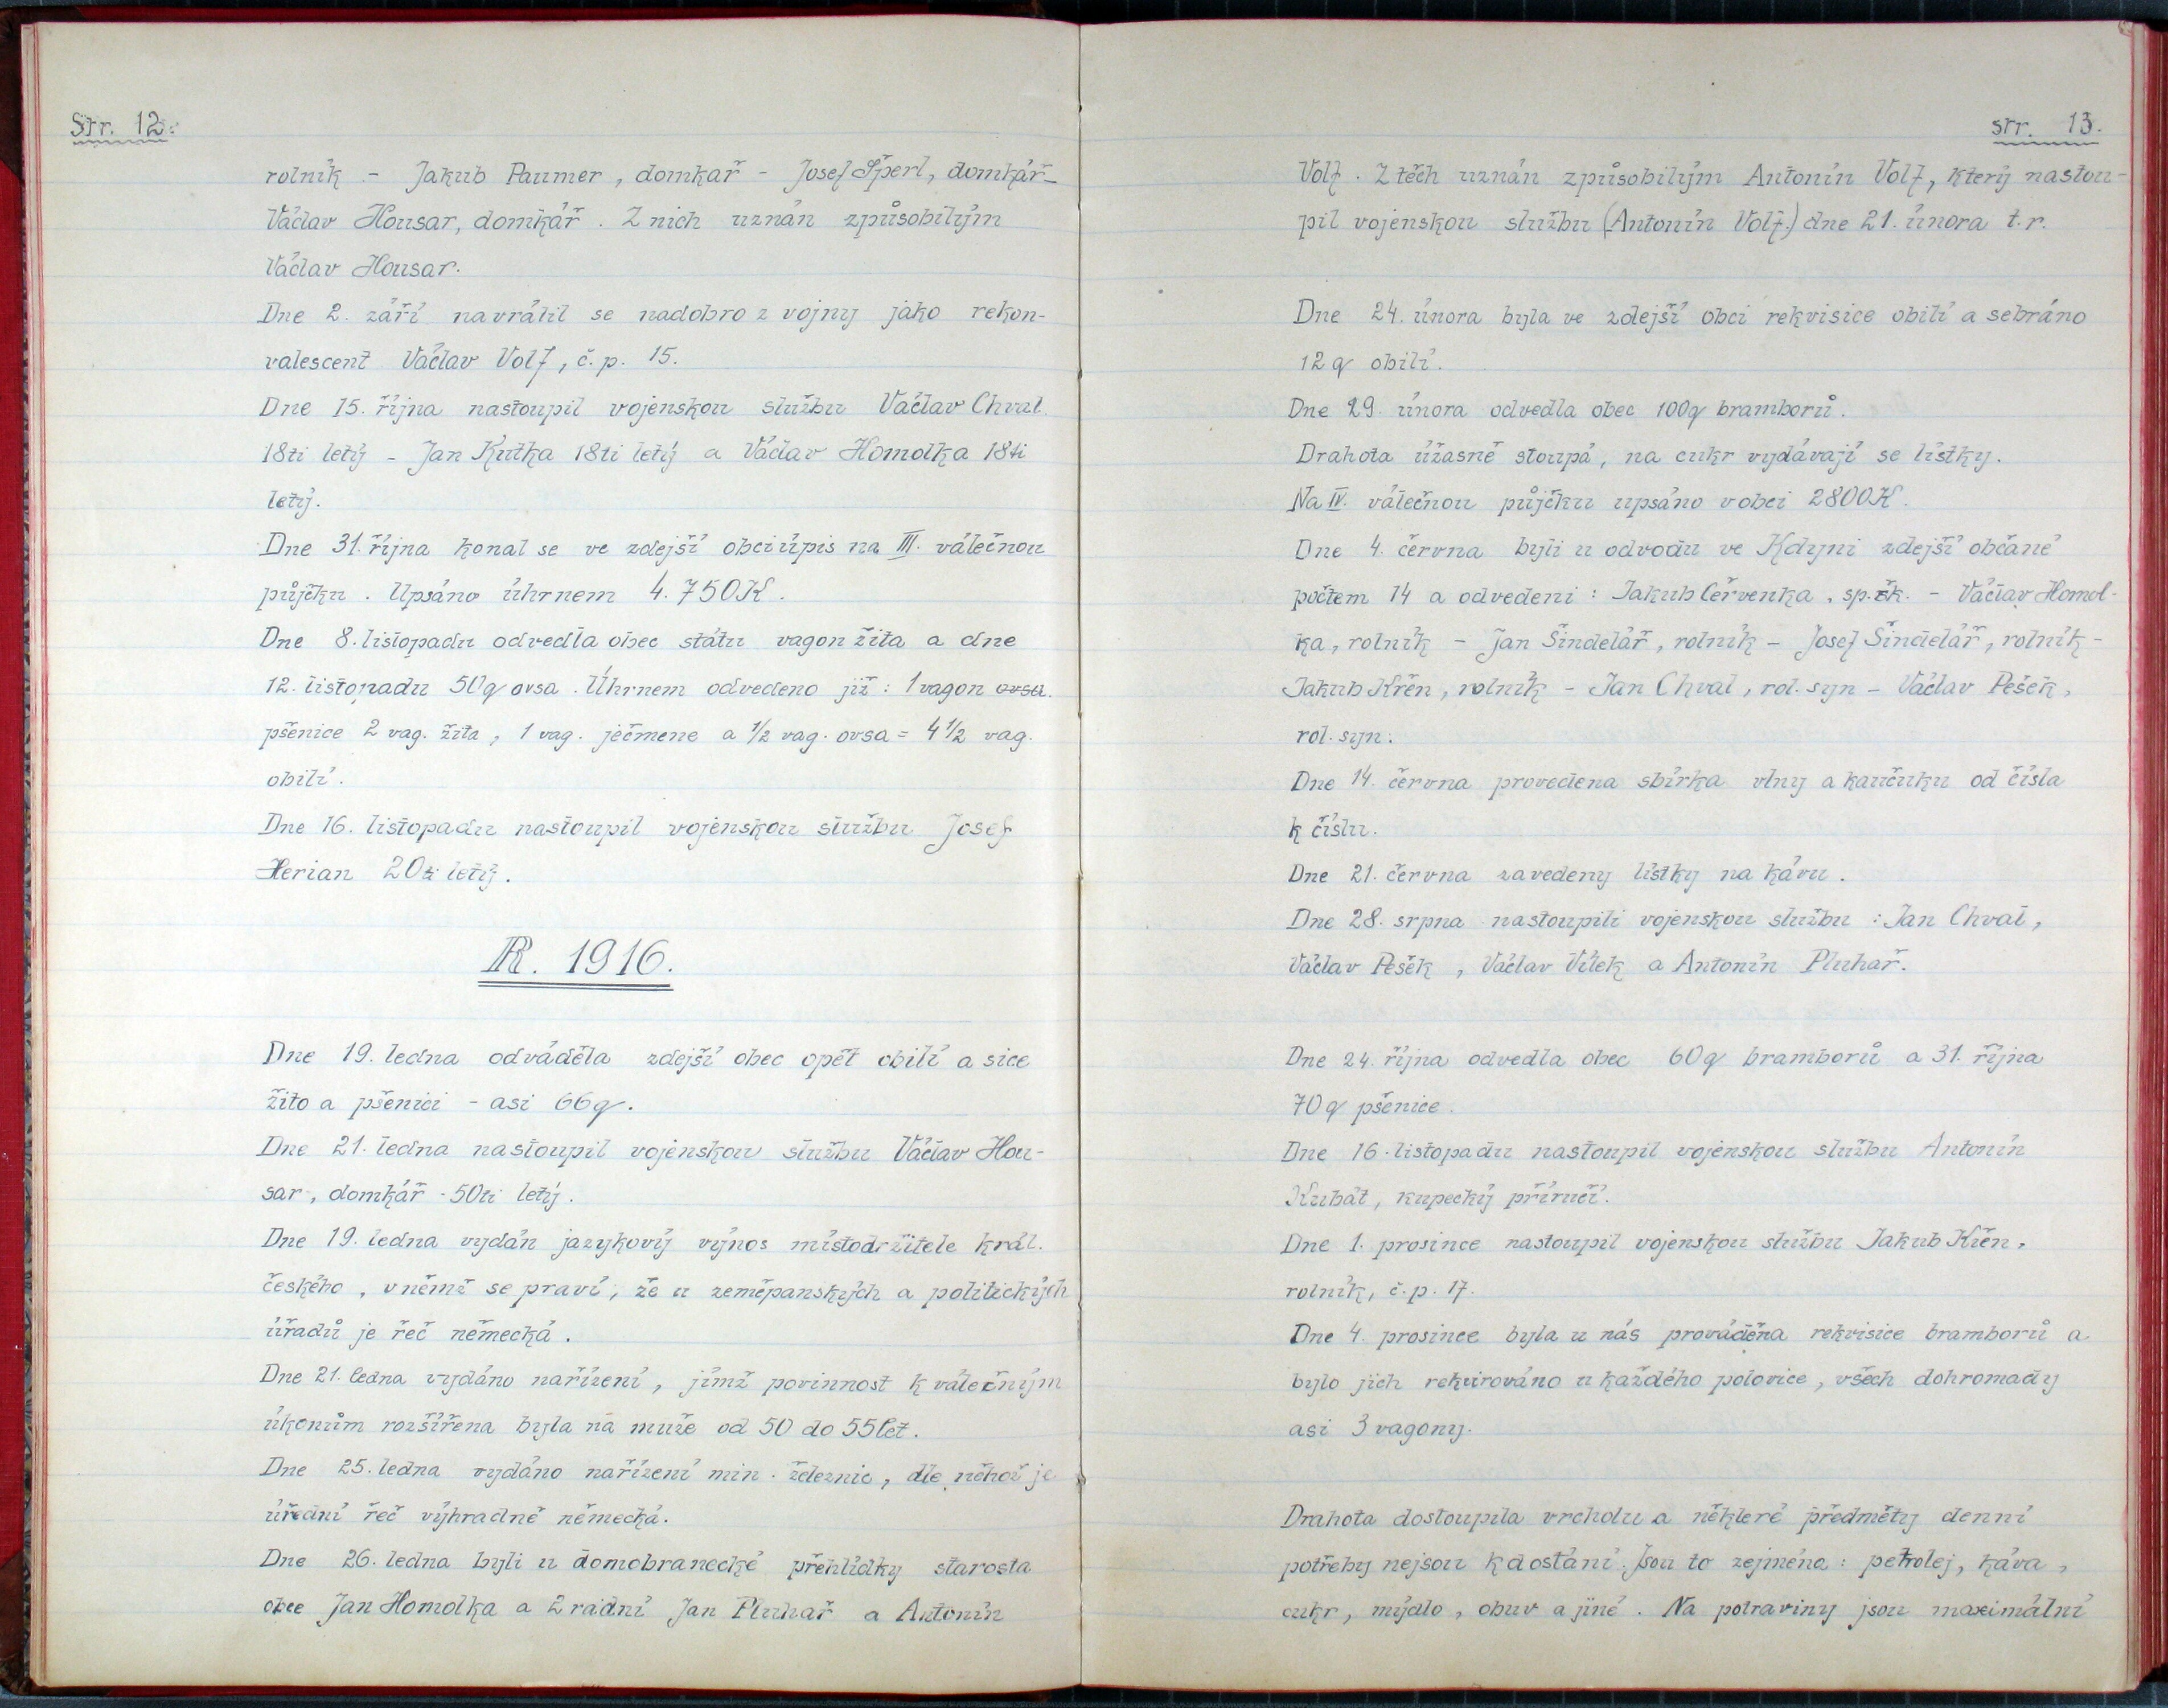 Str. 12.
rolník - Jakub Paumer, domkař - Josef Šperl, domkář -
Václav Housar, domkář. Z nich uznán způsobilým
Václav Housar.
Dne 2. září navrátil se nadobro z vojny jako rekon-
valescent Václav Volf, č.p. 15.
Dne 15. října nastoupil vojenskou službu Václav Chval
18ti letý - Jan Kutka 18ti letý a Václav Homolka 18ti
letý.
Dne 31. října konal se ve zdejší obci úpis na III. válečnou
půjčku. Upsáno úhrnem 4.750K.
Dne 8. listopadu odvedla obec státu vagon žita a dne
12. listopadu 50q ovsa. Úhrnem odvedeno již: 1 vagon ovsa.
pšenice 2 vag. žita, 1 vag. ječmene a 1/2 vag. ovsa = 4 1/2 vag.
obilí.
Dne 16. listopadu nastoupil vojenskou službu Josef
Herian 20ti letý.
R. 1916.
Dne 19. ledna odváděla zdejší obec opět obilí a sice
žito a pšenici - asi 66q.
Dne 21. ledna nastoupil vojenskou službu Václav Hou-
sar, domkář - 50ti letý.
Dne 19. ledna vydán jazykový výnos místodržitele král.
českého, v němž se praví, že u zeměpanských a politických
úřadů je řeč německá.
Dne 21. ledna vydáno nařízení, jímž povinnost k válečným
úkonům rozšířena byla na muže od 50 do 55 let.
Dne 25. ledna vydáno nařízení min. železnic, dle něhož je
úřední řeč výhradně německá.
Dne 26. ledna byli u domobranecké přehlídky starosta
obce Jan Homolka a 2 radní Jan Pluhař a Antonín
str. 13.
Volf. Z těch uznán způsobilým Antonín Volf, který nastou-
pil vojenskou službu (Antonín Volf.) dne 21. února t.r.
Dne 24. února byla ve zdejší obci rekvisice obilí a sebráno
12 q obilí.
Dne 29. února odvedla obec 100q bramborů.
Drahota úžasně stoupá, na cukr vydávají se lístky.
Na IV. válečnou půjčku upsáno v obci 2800K.
Dne 4. června byli u odvodu ve Kdyni zdejší občané
počtem 14 a odvedeni: Jakub Červenka, sp. řk. - Václav Homol-
ka, rolník - Jan Šindelář, rolník - Josef Šindelář, rolník -
Jakub Křen, rolník - Jan Chval, rol. syn - Václav Pešek,
rol. syn.
Dne 14. června provedena sbírka vlny a kaučuku od čísla
k číslu.
Dne 21. června zavedeny lístky na kávu.
Dne 28. srpna nastoupili vojenskou službu: Jan Chval,
Václav Pešek, Václav Vítek a Antonín Pluhař.
Dne 24. října odvedla obec 60q bramborů a 31. října
70 q pšenice.
Dne 16. listopadu nastoupil vojenskou službu Antonín
Kubát, kupecký příručí.
Dne 1. prosince nastoupil vojenskou službu Jakub Křen,
rolník, č.p. 17.
Dne 4. prosince byla u nás prováděna rekvisice bramborů a
bylo jich rekvirováno u každého polovice, všech dohromady
asi 3 vagony.
Drahota dostoupila vrcholu a některé předměty denní
potřeby nejsou k dostání. Jsou to zejména: petrolej, káva,
cukr, mýdlo, obuv a jiné. Na potraviny jsou maximální